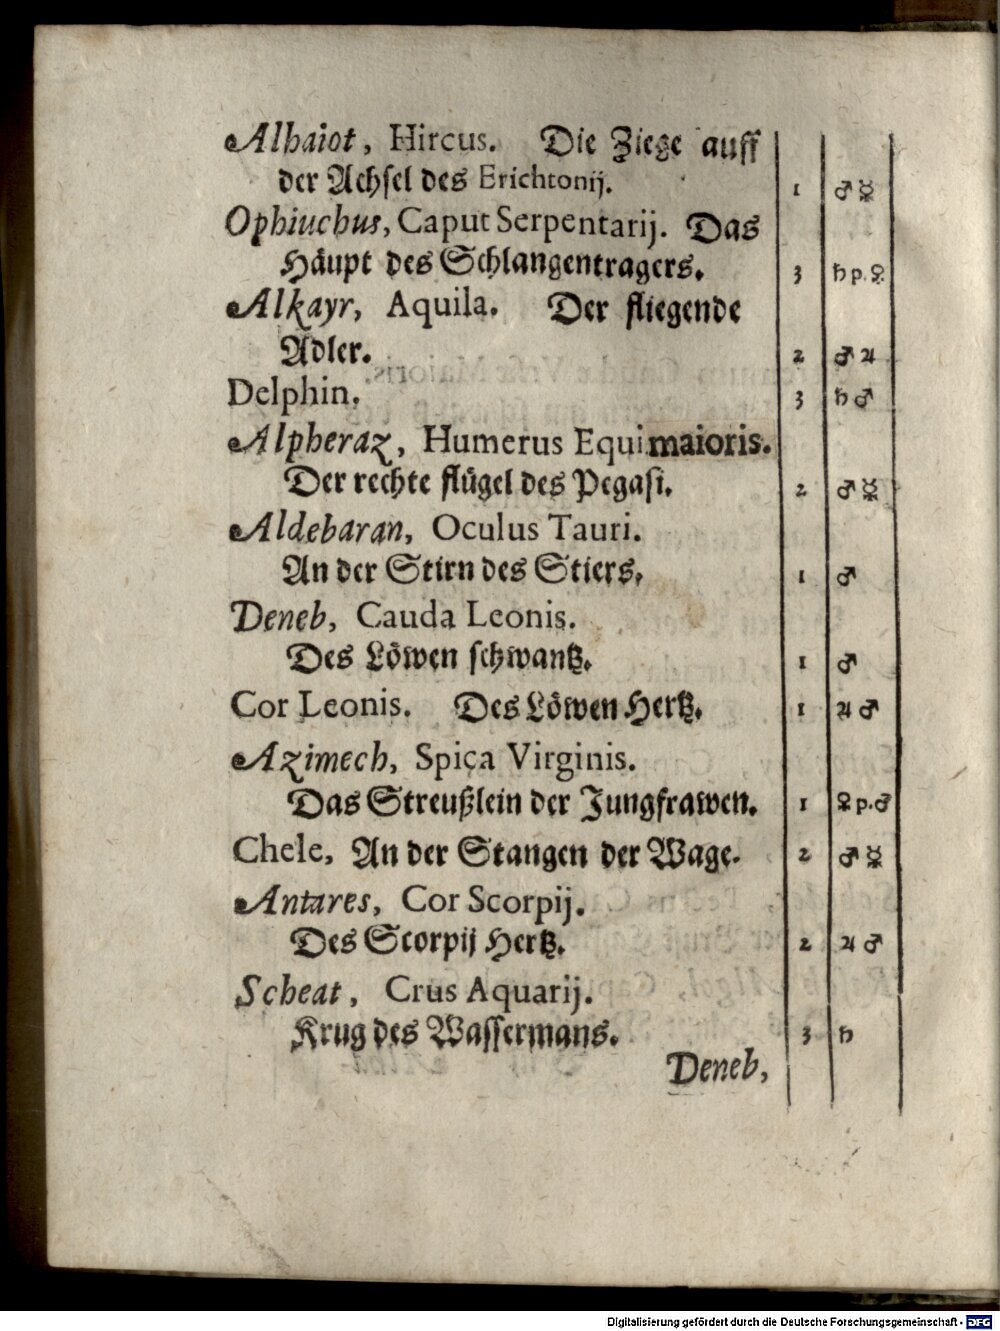 Alhaiot, Hircus. Die Ziege auff
der Achsel des Erichtonij. 1 ♂☿
Ophiuchus, Caput Serpentarij. Das
Häupt des Schlangentragers. 3 ♄ p. ♀
Alkayr, Aquila. Der fliegende
Adler. 2 ♂ ♃
Delphin. 3 ♄ ♂
Alpheraz, Humerus Equi maioris.
Der rechte flügel des Pegasi. 2 ♂ ☿
Aldebaran, Oculus Tauri.
An der Stirn des Stiers. 1 ♂
Deneb, Cauda Leonis.
Des Löwen schwantz. 1 ♂
Cor Leonis. Des Löwen Hertz. 1 ♃ ♂
Azimech, Spica Virginis.
Das Streußlein der Jungfrawen. 1 ♀ p. ♂
Chele, An der Stangen der Wage. 2 ♂ ☿
Antares, Cor Scorpij.
Des Scorpij Hertz. 2 ♃ ♂
Scheat, Crus Aquarij.
Krug des Wassermans. 3 ♄
Deneb,
Digitalisierung gefördert durch die Deutsche Forschungsgemeinschaft - DFG